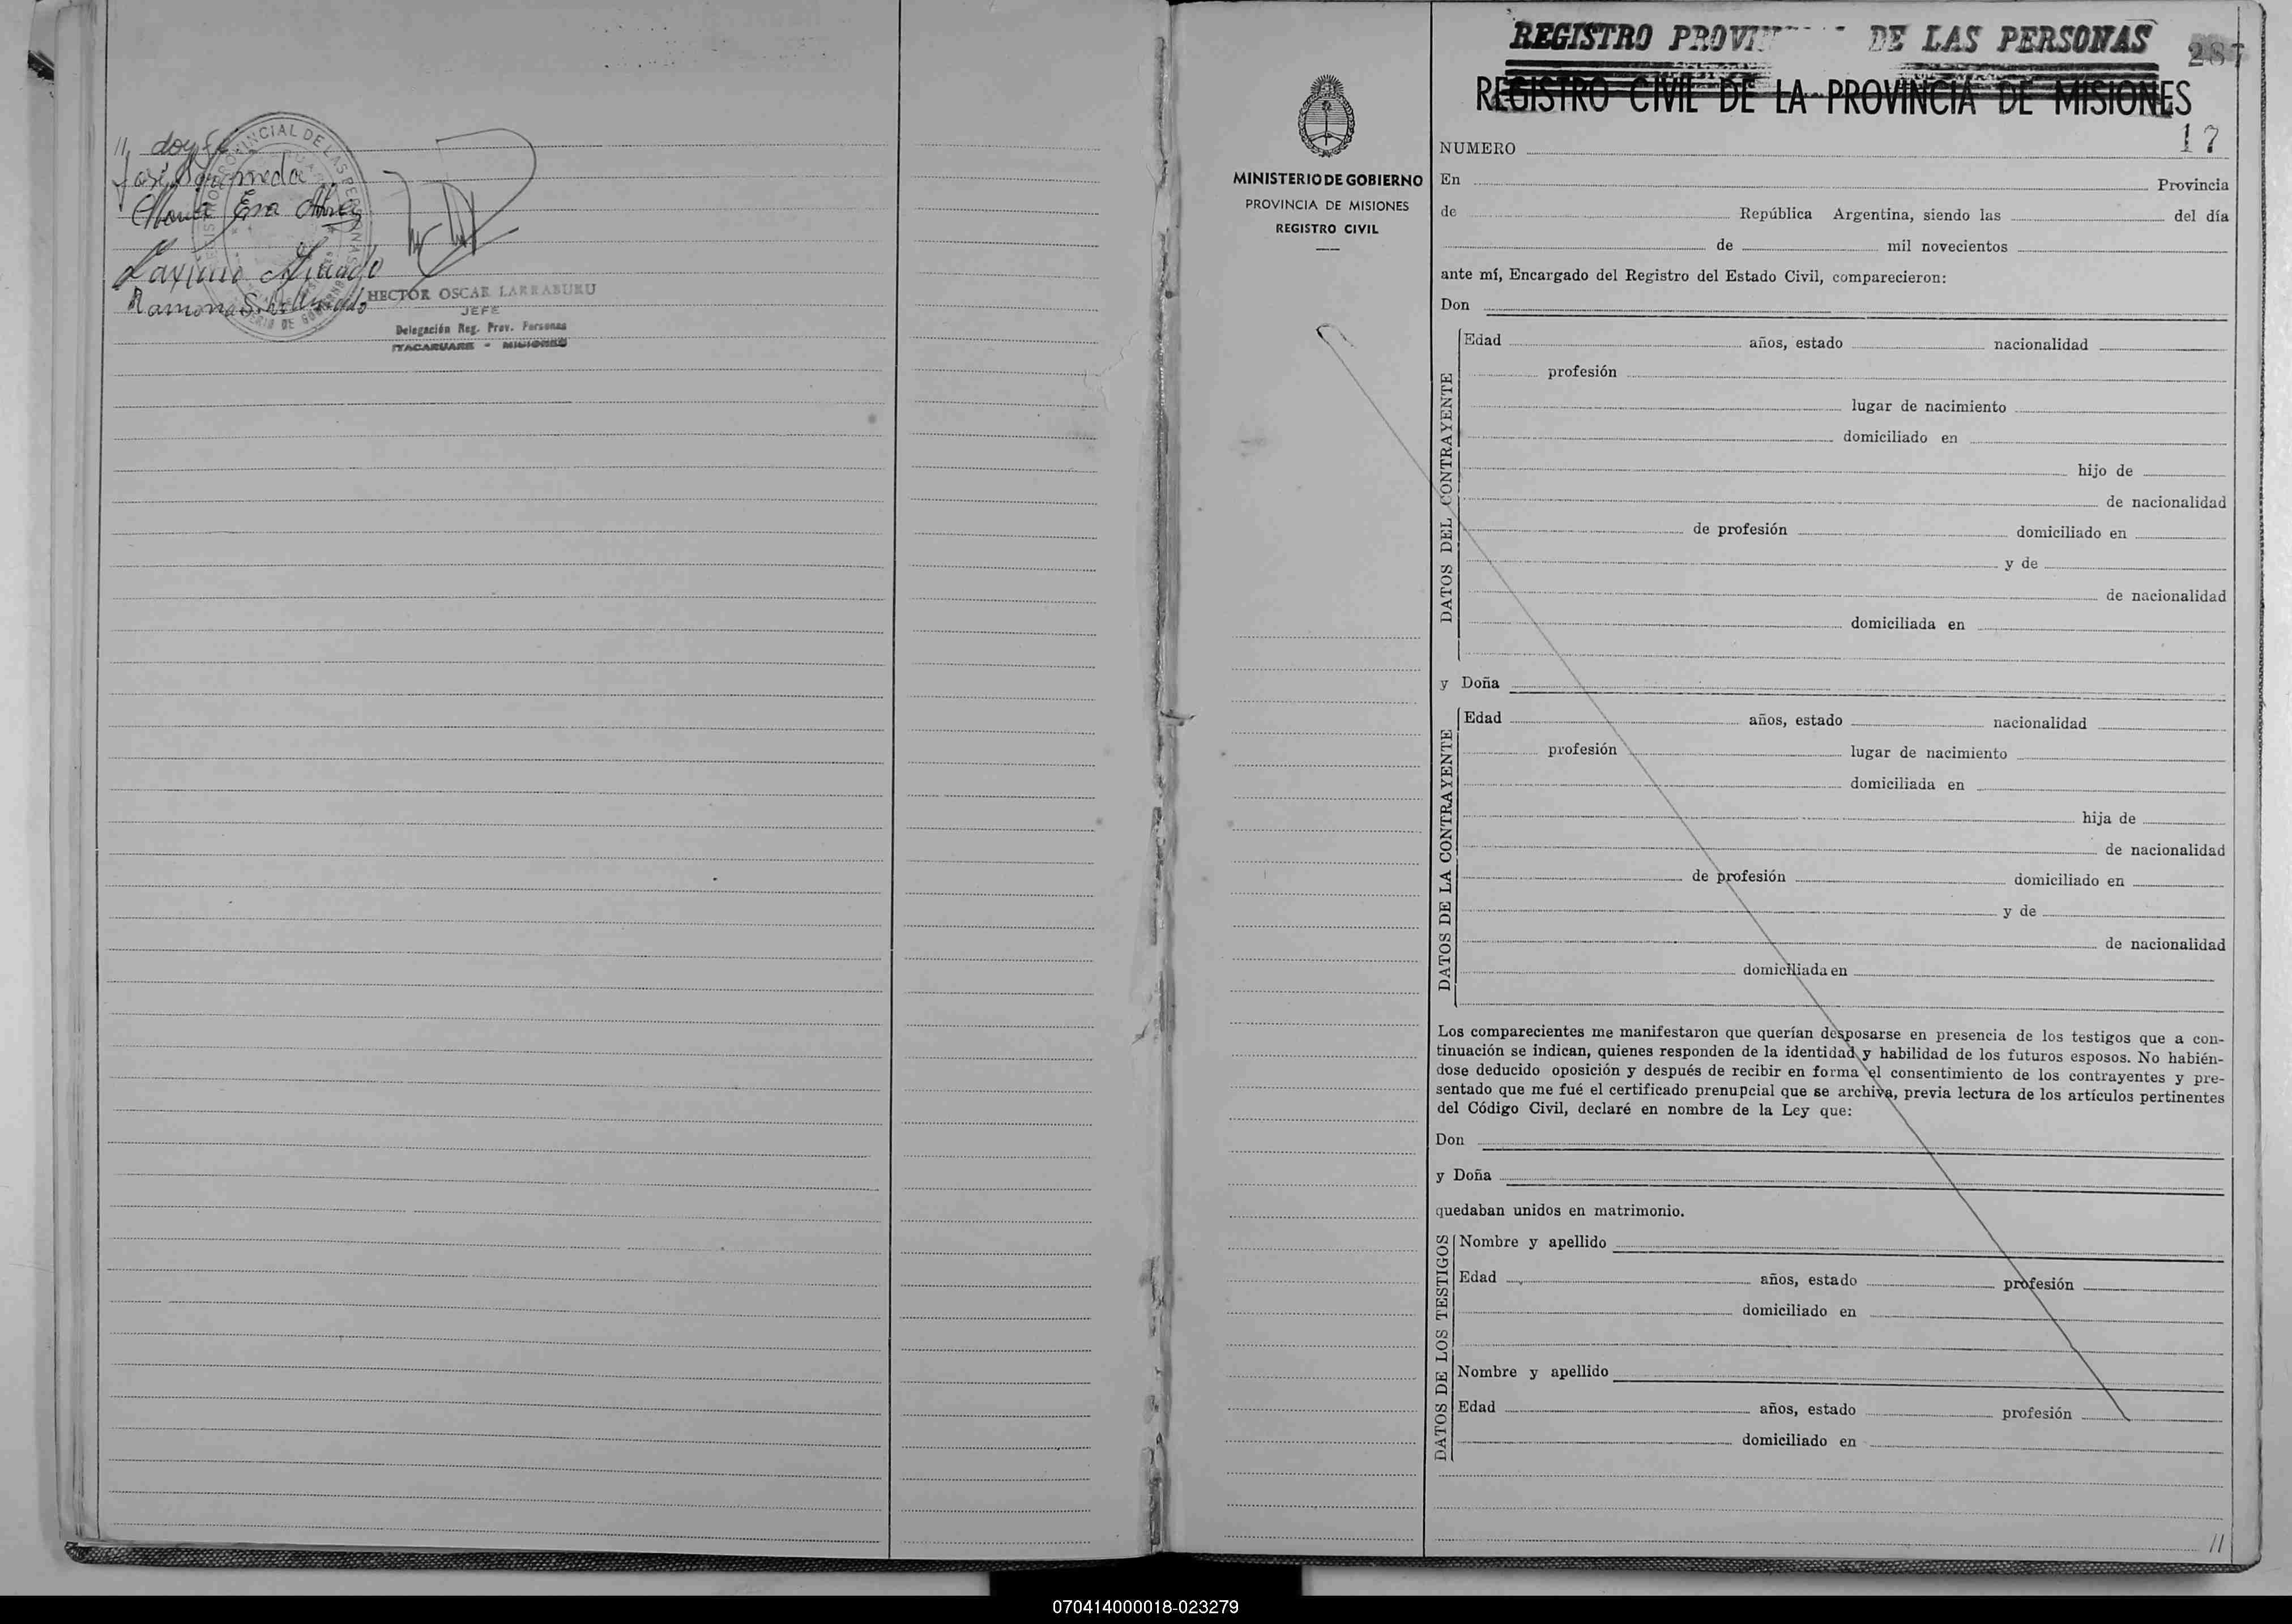 11 doy fe
José Sepulveda
Maximo
Ramona S. de
REGISTRO PROVINCIAL DE LAS PERSONAS
HECTOR OSCAR LARRABURU
JEFE
Delegación Reg. Prov. Personas
ITACARUARE - MISIONES
MINISTERIO DE GOBIERNO
PROVINCIA DE MISIONES
REGISTRO CIVIL
REGISTRO PROVIN DE LAS PERSONAS
287
REGISTRO CIVIL DE LA PROVINCIA DE MISIONES
17
NUMERO
En Provincia
de República Argentina, siendo las del día
de mil novecientos
ante mí, Encargado del Registro del Estado Civil, comparecieron:
Don
DATOS DEL CONTRAYENTE
Edad años, estado nacionalidad
profesión
lugar de nacimiento
domiciliado en
hijo de
de nacionalidad
de profesión domiciliado en
y de
de nacionalidad
domiciliada en
y Doña
DATOS DE LA CONTRAYENTE
Edad años, estado nacionalidad
profesión lugar de nacimiento
domiciliada en
hija de
de nacionalidad
de profesión domiciliado en
y de
de nacionalidad
domiciliada en
Los comparecientes me manifestaron que querían desposarse en presencia de los testigos que a con-
tinuación se indican, quienes responden de la identidad y habilidad de los futuros esposos. No habién-
dose deducido oposición y después de recibir en forma el consentimiento de los contrayentes y pre-
sentado que me fué el certificado prenupcial que se archiva, previa lectura de los artículos pertinentes
del Código Civil, declaré en nombre de la Ley que:
Don
y Doña
quedaban unidos en matrimonio.
DATOS DE LOS TESTIGOS
Nombre y apellido
Edad años, estado profesión
domiciliado en
Nombre y apellido
Edad años, estado profesión
domiciliado en
//
070414000018-023279